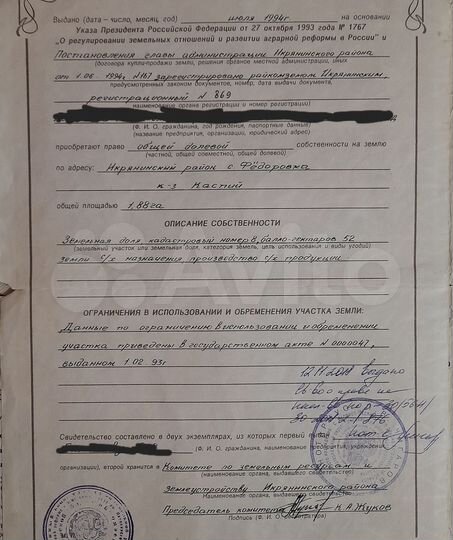 Выдано (дата – число, месяц, год) июля 1994г на основании
Указа Президента Российской Федерации от 27 октября 1993 года № 1767
"О регулировании земельных отношений и развитии аграрной реформы в России" и
Постановления главы администрации Икрянинского района
(договора купли-продажи земли, решения органов местной администрации, иных
от 1.06 1994г №167 зарегистрировано райкомземом Икрянинским
предусмотренных законом документов, номер, дата выдачи документа,
регистрационный № 869
наименование органа регистрации и номер регистрации)
(Ф. И. О. гражданина, год рождения, паспортные данные)
(название предприятия, организации, юридический адрес)
приобретают право общей долевой собственности на землю
(частной, общей совместной, общей долевой)
по адресу: Икрянинский район с. Фёдоровка
к-з Каспий
общей площадью 1,88га
ОПИСАНИЕ СОБСТВЕННОСТИ
Земельная доля, кадастровый номер 8, балло-гектаров 52
(земельный участок или земельная доля, категория земель, цель использования и виды угодий)
земли с/х назначения производство с/х продукции
ОГРАНИЧЕНИЯ В ИСПОЛЬЗОВАНИИ И ОБРЕМЕНЕНИЯ УЧАСТКА ЗЕМЛИ:
Данные по ограничению в использовании и обременении
участка приведены в государственном акте № 0000047
выданном 1.02.93г
выдано
Свидетельство составлено в двух экземплярах, из которых первый выдан
(Ф. И. О. гражданина, наименование предприятия, учреждения
организации), второй хранится в Комитете по земельным ресурсам и
(Наименование органа, выдавшего свидетельство)
землеустройству Икрянинского района
(Наименование органа, выдавшего свидетельство)
Председатель комитета Н.А. Жуков
Подпись (Ф. И. О. регистратора)
Avito